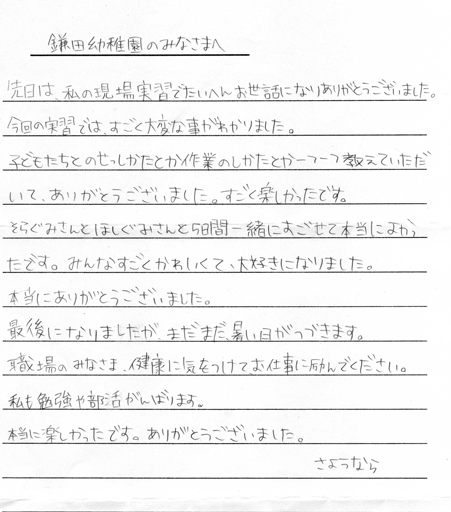 鎌田幼稚園のみなさまへ
先日は、私の現場実習でたいへんお世話になりありがとうございました。
今回の実習では、すごく大変な事がわかりました。
子どもたちとのせっしかたとか作業のしかたとか一つ一つ教えていただ
いて、ありがとうございました。すごく楽しかったです。
そらぐみさんとほしぐみさんと5日間一緒にすごせて本当によかっ
たです。みんなすごくかわいくて、大好きになりました。
本当にありがとうございました。
最後になりましたが、まだまだ、暑い日がつづきます。
職場のみなさま、健康に気をつけてお仕事に励んでください。
私も勉強や部活がんばります。
本当に楽しかったです。ありがとうございました。
さようなら